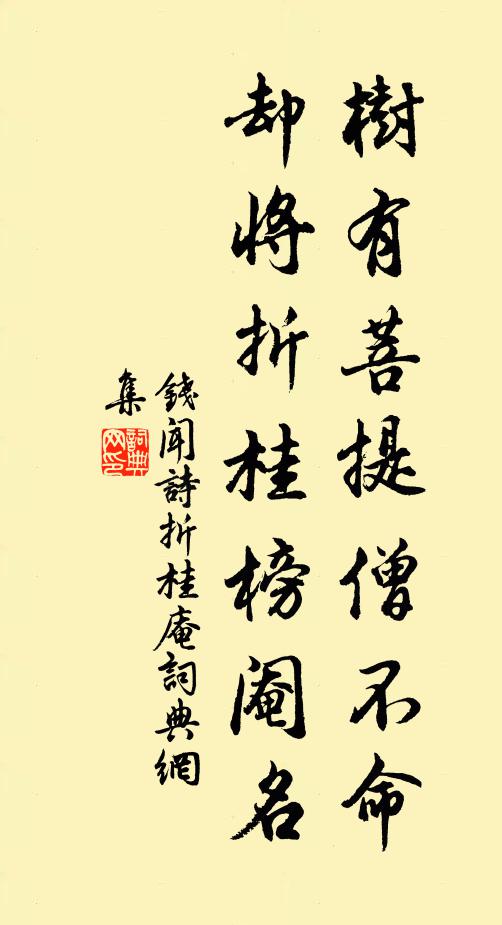 樹有菩提僧不命
却將折桂榜阉名
錢聞詩折桂庵詞典網
集
詞典
网印